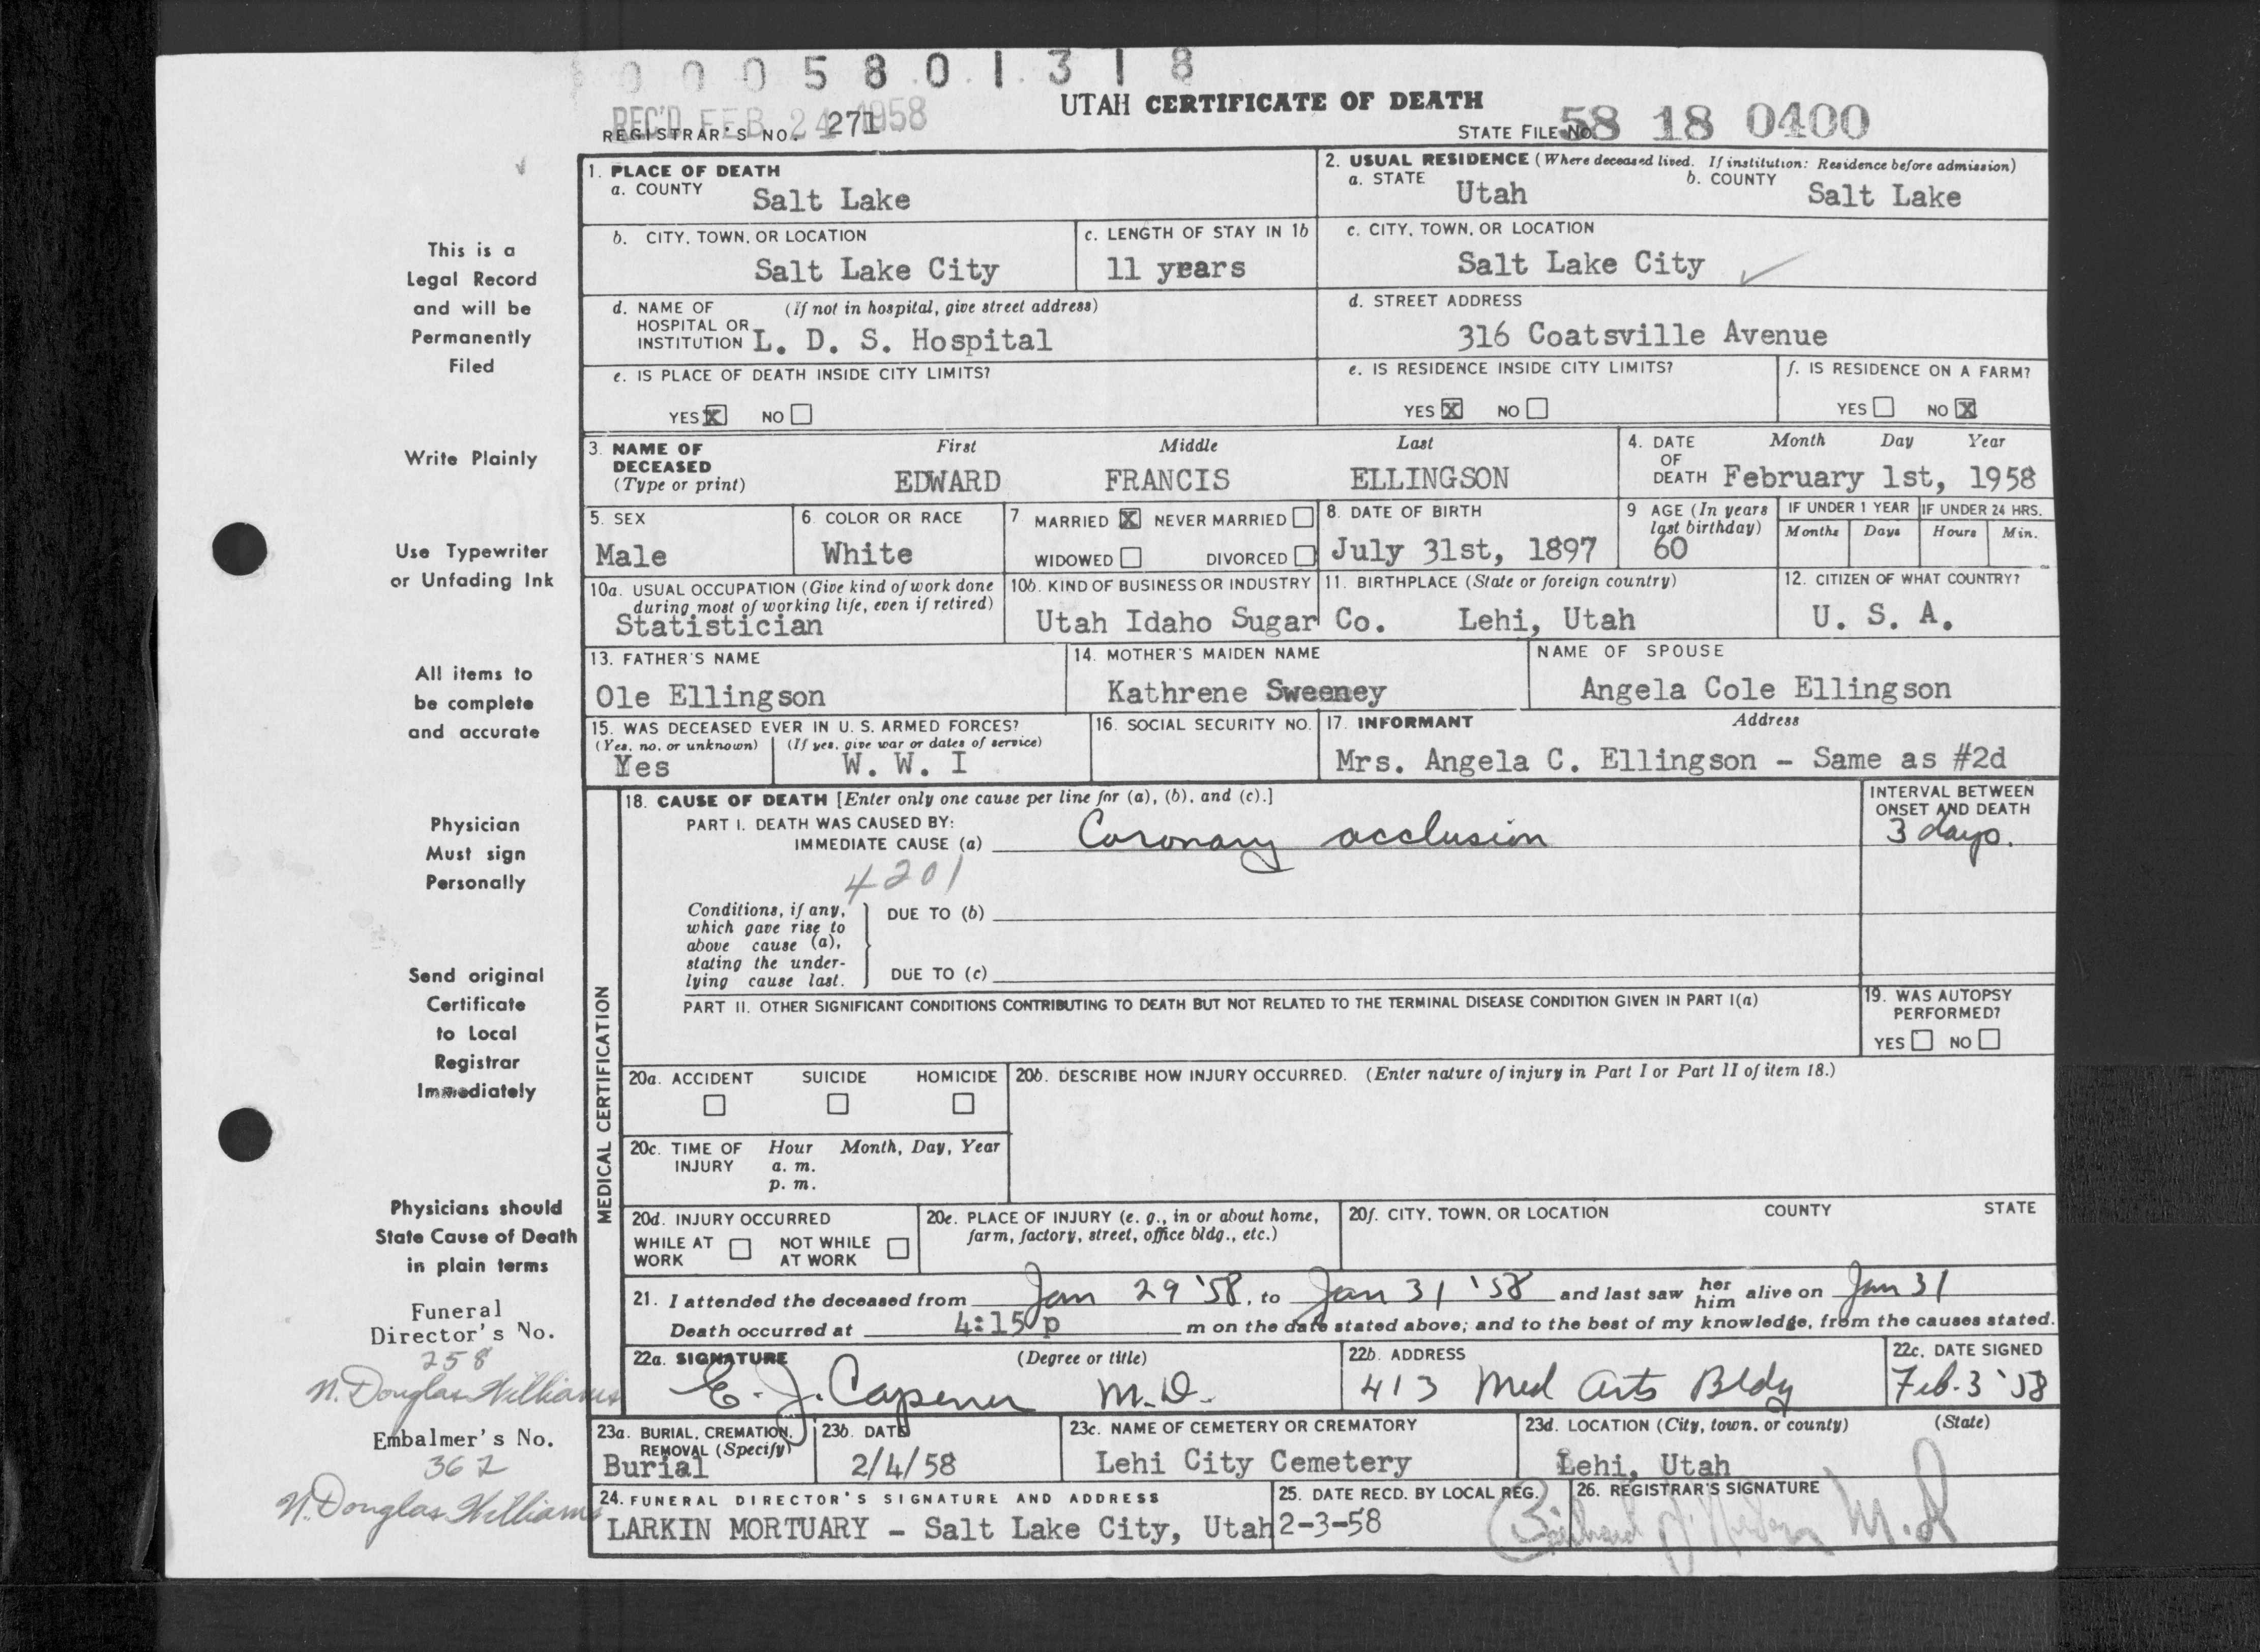 0005801318
UTAH CERTIFICATE OF DEATH
REC'D FEB 24 1958
REGISTRAR'S NO. 271
STATE FILE NO. 58 18 0400
1. PLACE OF DEATH
a. COUNTY Salt Lake
2. USUAL RESIDENCE (Where deceased lived. If institution: Residence before admission)
a. STATE Utah b. COUNTY Salt Lake
b. CITY, TOWN, OR LOCATION Salt Lake City
c. LENGTH OF STAY IN 1b 11 years
c. CITY, TOWN, OR LOCATION Salt Lake City
d. NAME OF HOSPITAL OR INSTITUTION (If not in hospital, give street address) L. D. S. Hospital
d. STREET ADDRESS 316 Coatsville Avenue
e. IS PLACE OF DEATH INSIDE CITY LIMITS?
YES X NO
e. IS RESIDENCE INSIDE CITY LIMITS?
YES X NO
f. IS RESIDENCE ON A FARM?
YES NO X
3. NAME OF DECEASED (Type or print) First Middle Last
EDWARD FRANCIS ELLINGSON
4. DATE OF DEATH Month Day Year
February 1st, 1958
5. SEX Male
6. COLOR OR RACE White
7. MARRIED X NEVER MARRIED
WIDOWED DIVORCED
8. DATE OF BIRTH July 31st, 1897
9 AGE (In years last birthday) 60
IF UNDER 1 YEAR Months Days
IF UNDER 24 HRS. Hours Min.
10a. USUAL OCCUPATION (Give kind of work done during most of working life, even if retired)
Statistician
10b. KIND OF BUSINESS OR INDUSTRY
Utah Idaho Sugar Co.
11. BIRTHPLACE (State or foreign country)
Lehi, Utah
12. CITIZEN OF WHAT COUNTRY?
U. S. A.
13. FATHER'S NAME
Ole Ellingson
14. MOTHER'S MAIDEN NAME
Kathrene Sweeney
NAME OF SPOUSE
Angela Cole Ellingson
15. WAS DECEASED EVER IN U. S. ARMED FORCES?
(Yes, no, or unknown) (If yes, give war or dates of service)
Yes W. W. I
16. SOCIAL SECURITY NO.
17. INFORMANT Address
Mrs. Angela C. Ellingson - Same as #2d
MEDICAL CERTIFICATION
18. CAUSE OF DEATH [Enter only one cause per line for (a), (b), and (c).]
INTERVAL BETWEEN ONSET AND DEATH
PART I. DEATH WAS CAUSED BY:
IMMEDIATE CAUSE (a) Coronary acclusion 3 days.
4201
Conditions, if any, which gave rise to above cause (a), stating the underlying cause last.
DUE TO (b)
DUE TO (c)
PART II. OTHER SIGNIFICANT CONDITIONS CONTRIBUTING TO DEATH BUT NOT RELATED TO THE TERMINAL DISEASE CONDITION GIVEN IN PART I(a)
19. WAS AUTOPSY PERFORMED?
YES NO
20a. ACCIDENT SUICIDE HOMICIDE
20b. DESCRIBE HOW INJURY OCCURRED. (Enter nature of injury in Part I or Part II of item 18.)
20c. TIME OF INJURY Hour Month, Day, Year
a. m.
p. m.
20d. INJURY OCCURRED
WHILE AT WORK NOT WHILE AT WORK
20e. PLACE OF INJURY (e. g., in or about home, farm, factory, street, office bldg., etc.)
20f. CITY, TOWN, OR LOCATION COUNTY STATE
21. I attended the deceased from Jan 29 '58, to Jan 31 '58 and last saw her him alive on Jan 31
Death occurred at 4:15 p m on the date stated above; and to the best of my knowledge, from the causes stated.
22a. SIGNATURE (Degree or title)
E. J. Capener M.D.
22b. ADDRESS
413 Med Arts Bldg
22c. DATE SIGNED
Feb. 3 '58
23a. BURIAL, CREMATION, REMOVAL (Specify)
Burial
23b. DATE
2/4/58
23c. NAME OF CEMETERY OR CREMATORY
Lehi City Cemetery
23d. LOCATION (City, town, or county) (State)
Lehi, Utah
24. FUNERAL DIRECTOR'S SIGNATURE AND ADDRESS
LARKIN MORTUARY - Salt Lake City, Utah
25. DATE RECD. BY LOCAL REG.
2-3-58
26. REGISTRAR'S SIGNATURE
M.D
This is a
Legal Record
and will be
Permanently
Filed
Write Plainly
Use Typewriter
or Unfading Ink
All items to
be complete
and accurate
Physician
Must sign
Personally
Send original
Certificate
to Local
Registrar
Immediately
Physicians should
State Cause of Death
in plain terms
Funeral
Director's No.
258
N. Douglas Williams
Embalmer's No.
362
N. Douglas Williams